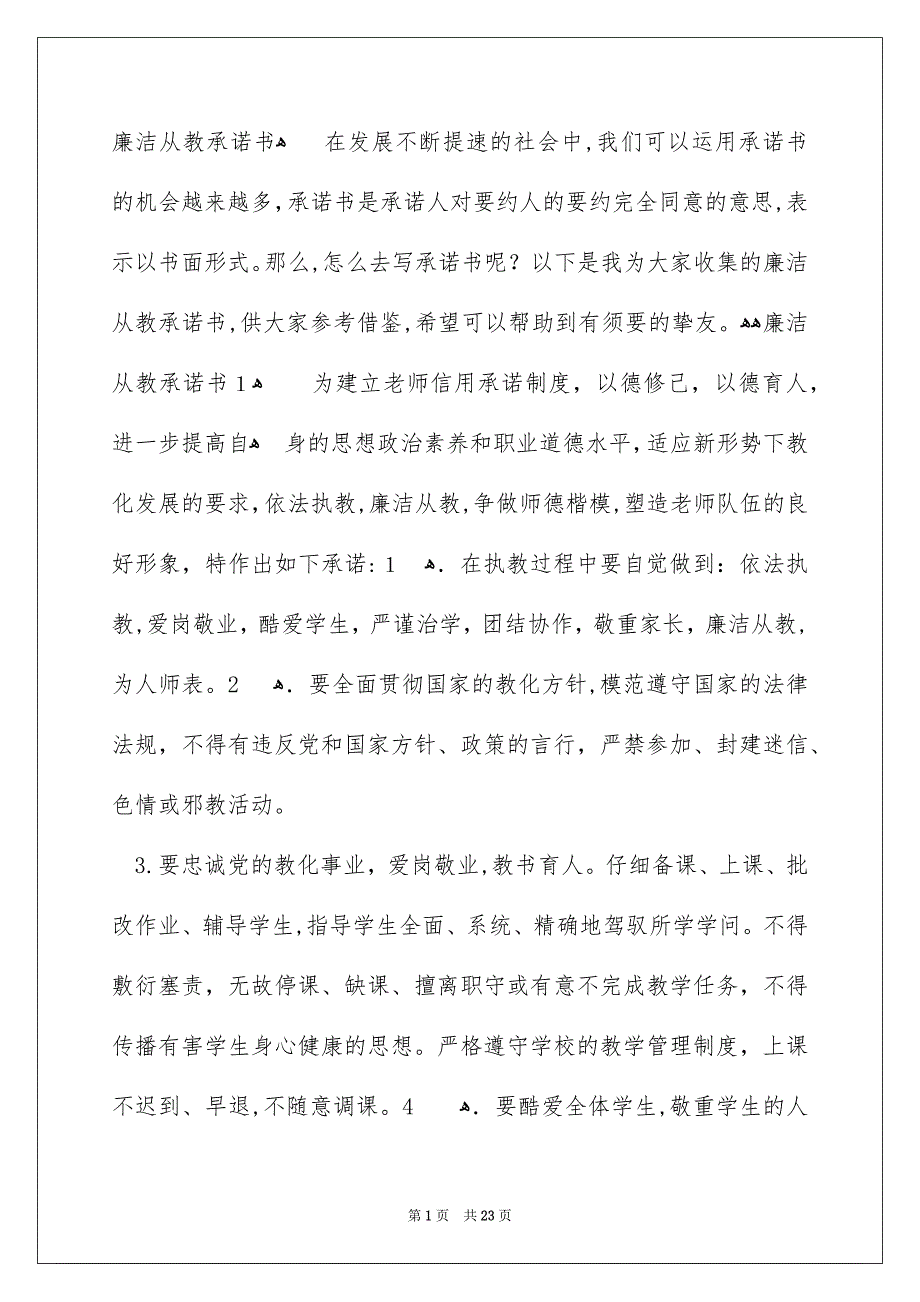 廉洁从教承诺书ﻬ 在发展不断提速的社会中,我们可以运用承诺书
的机会越来越多，承诺书是承诺人对要约人的要约完全同意的意思,表
示以书面形式。那么,怎么去写承诺书呢？以下是我为大家收集的廉洁
从教承诺书,供大家参考借鉴,希望可以帮助到有须要的挚友。ﻬﻬ廉洁
从教承诺书 1 ﻬ 为建立老师信用承诺制度，以德修己，以德育人，
进一步提高自ﻬ 身的思想政治素养和职业道德水平，适应新形势下教
化发展的要求，依法执教,廉洁从教,争做师德楷模,塑造老师队伍的良
好形象，特作出如下承诺: 1 ﻬ．在执教过程中要自觉做到：依法执
教,爱岗敬业，酷爱学生，严谨治学，团结协作，敬重家长，廉洁从教,
为人师表。2 ﻬ．要全面贯彻国家的教化方针,模范遵守国家的法律
法规，不得有违反党和国家方针、政策的言行，严禁参加、封建迷信、
色情或邪教活动。
3.要忠诚党的教化事业，爱岗敬业,教书育人。仔细备课、上课、批
改作业、辅导学生,指导学生全面、系统、精确地驾驭所学学问。不得
敷衍塞责，无故停课、缺课、擅离职守或有意不完成教学任务，不得
传播有害学生身心健康的思想。严格遵守学校的教学管理制度，上课
不迟到、早退,不随意调课。4 ﻬ．要酷爱全体学生,敬重学生的人
第 1 页 共 23 页